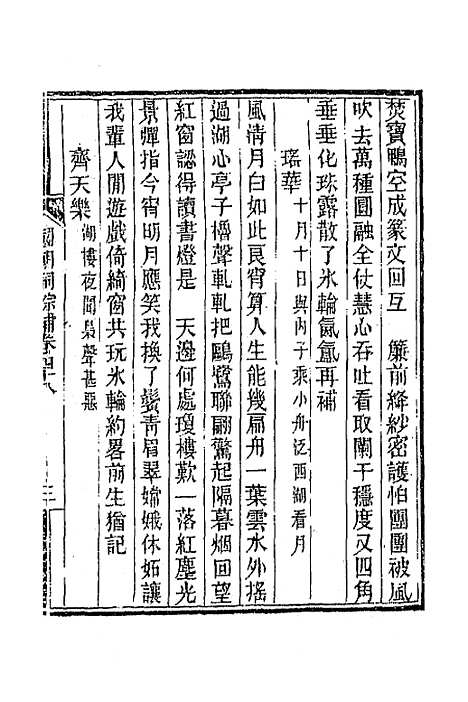 焚寶鴨空成篆文回互　簾前絳紗密護怕團團被風
吹去萬種圓融全仗慧心吞吐看取闌干穩度又四角
垂垂化珠露散了氷輪氤氳再補
瑤華　十月十日與內子乘小舟泛西湖看月
風清月白如此良宵算人生能幾扁舟一葉雲水外搖
過湖心亭子櫓聲軋軋把鷗鷺聯翩驚起隔暮烟回望
紅窗認得讀書燈是　天邊何處瓊樓歎一落紅塵光
景彈指今宵明月應笑我換了鬢青眉翠嫦娥休妬讓
我輩人閒遊戲倚綺窗共玩氷輪約畧前生猶記
齊天樂　湖樓夜聞梟聲甚惡
國朝詞綜補卷四十八
三